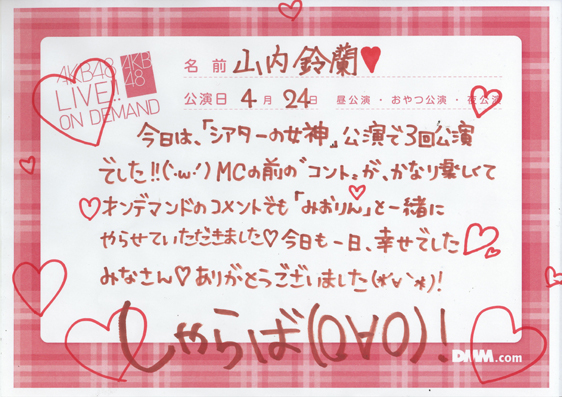 AKB48
LIVE!!
ON DEMAND
AKB
48
名前 山内鈴蘭♥
公演日 4月 24日 昼公演・おやつ公演・夜公演
今日は、「シアターの女神」公演で3回公演
でした!!(・ω・') MCの前の"コント"が、かなり楽しくて
♡オンデマンドのコメントでも「みおりん」と一緒に
やらせていただきました♡今日も一日、幸せでした
みなさん♡ありがとうございました(*´∨`*)!
しゃらば(Q∀O)!
DMM.com